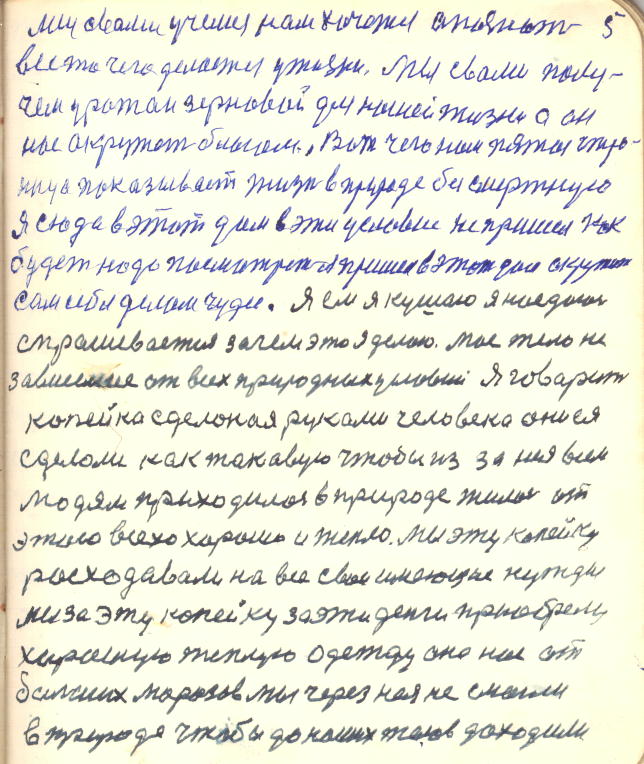 Мы с вами учимся нам хочется опознать 5
все то чего делается у жизни. Мы с вами полу-
чем урожаи зерновой для нашей жизни а он
нас окружает благом. Вот чего нам пятая
показывает жизнь в природе бессмертную
Я сюда в этот дом в эти условие не пришел как
будет надо посмотреть а я пришел в этот дом окружат
сам себя делом чуде. Я ем я кушаю я наедаюсь
спрашивается зачем это я делаю. мое тело не
зависемые от всех природных условий Я говарить
копейка сделоная руками человека они ея
сделали как такавую чтобы из за нея всем
людям приходилося в природе жилось от
этого всехо хорошо и тепло. мы эту копейку
росходавали на все свои имеющие нужды
мы за эту копейку за эти денги приобрели
харошую теплую одежду она нас от
балших морозов мы через ная не смогли
в природе чтобы до наших телов доходили